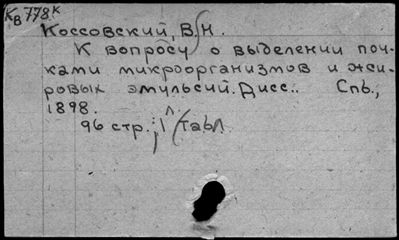 Кв 778 к
Коссовский, В. Н.
К вопросу о выделении поч-
ками микроорганизмов и жи-
ровых эмульсий. Дисс.. Спб.,
1898.
96 стр.; 1 л. табл.